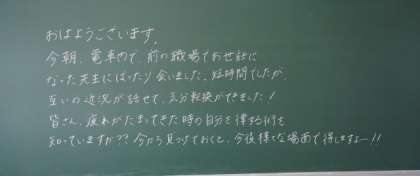 おはようございます。
今朝、電車内で、前の職場でお世話に
なった先生にばったり会いました。短時間でしたが、
互いの近況が話せて、気分転換ができました！
皆さん、疲れがたまってきた時の自分を律する術を
知っていますか？？今から見つけておくと、今後様々な場面で得しますよー！！